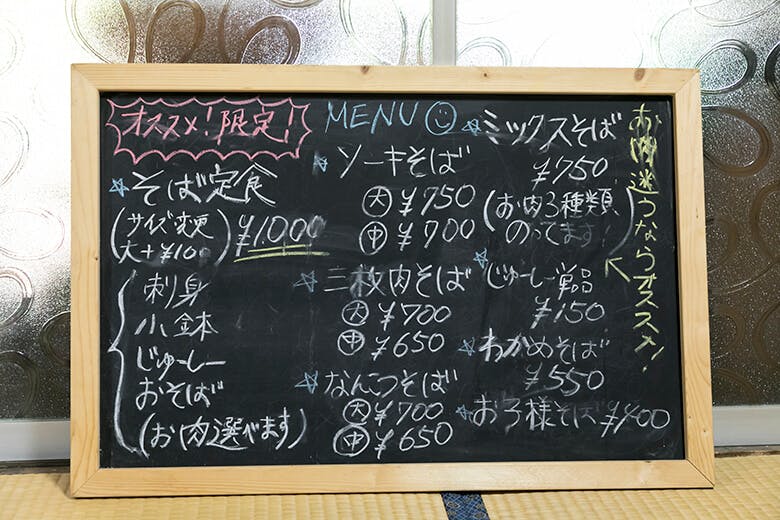 オススメ!限定!
☆そば定食
(サイズ変更
大+¥100)
¥1,000
刺身
小鉢
じゅーしー
おそば
(お肉選べます)
MENU
☆ソーキそば
大 ¥750
中 ¥700
☆三枚肉そば
大 ¥700
中 ¥650
☆なんこつそば
大 ¥700
中 ¥650
☆ミックスそば
¥750
(お肉3種類
のってます!)
☆じゅーしー単品
¥150
☆わかめそば
¥550
☆お子様そば ¥400
お肉迷うならオススメ!